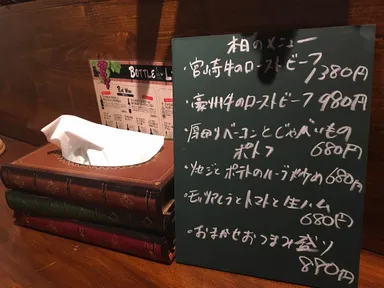 BOTTLE
柏のメニュー
・宮崎牛のローストビーフ 1380円
・豪州牛のローストビーフ 980円
・厚切りベーコンとじゃがいもの
ポトフ 680円
・ソーセージとポテトのハーブ炒め 680円
・モッツァレラとトマトと生ハム
680円
・おまかせおつまみ盛り
880円